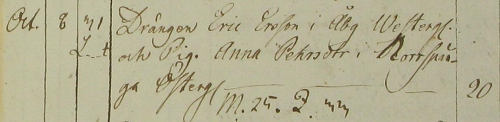 Oct. 8 Drängen Eric Ersson i Åby Westerg.
och Pig. Anna Pehrsdr i Norrspån-
ga Österg.
M. 25. Q. 20